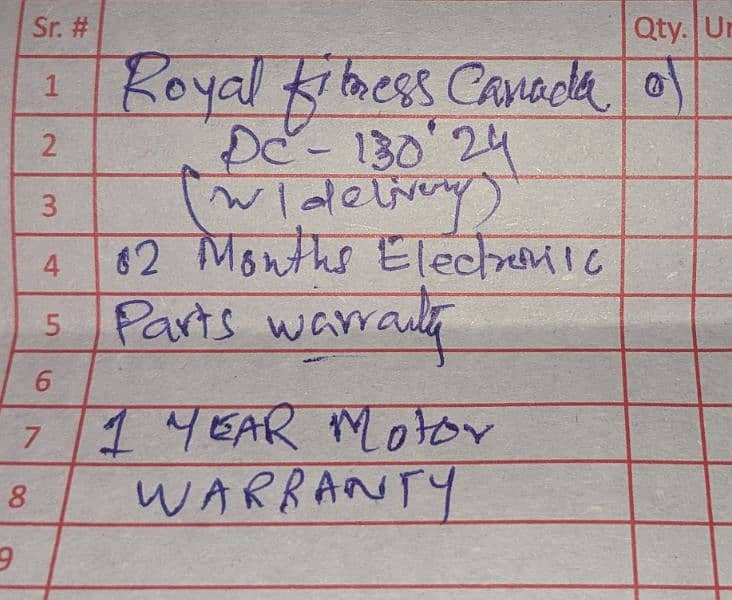 Sr. # Qty. Un
1 Royal fitness Canada 01
2 DC - 130' 24
3 (w/delivery)
4 02 Months Electronic
5 Parts warranty
6
7 1 YEAR Motor
8 WARRANTY
9